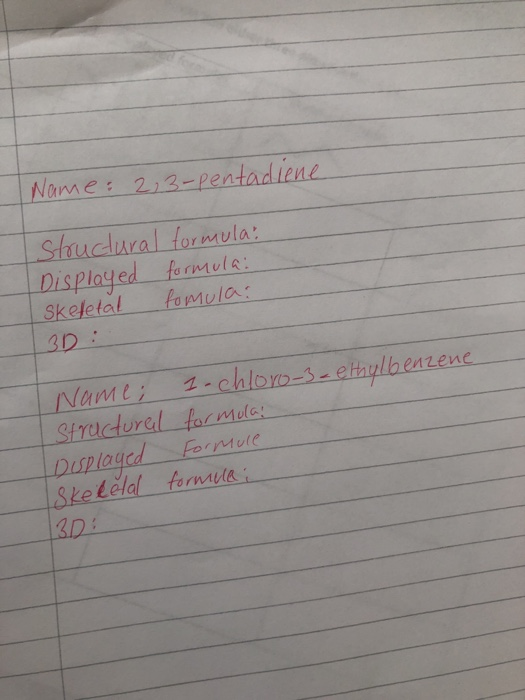 Name: 2,3-pentadiene
Structural formula:
Displayed formula:
Skeletal fomula:
3D:
Name; 1-chloro-3-ethylbenzene
Structural formula:
Displayed Formule
Skeletal formula:
3D: